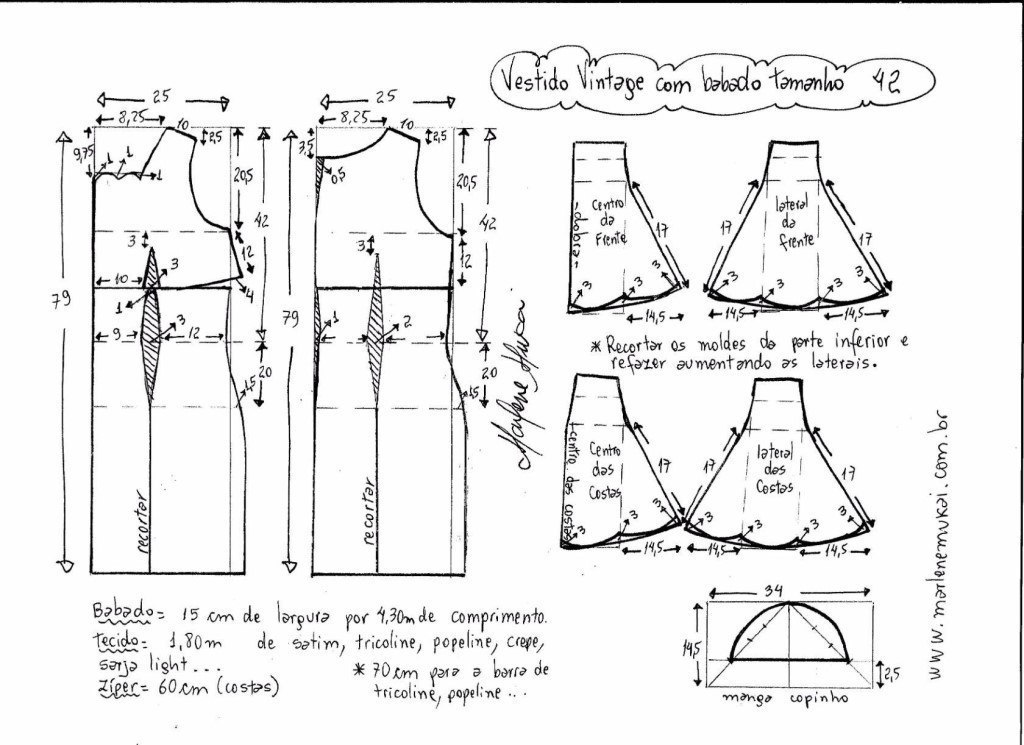 Vestido Vintage com babado tamanho 42
25
8,25
10
2,5
9,75
1
1
1
20,5
42
3
12
3
10
4
1
79
9
3
12
20
1,5
recortar
25
8,25
10
2,5
3,5
0,5
20,5
42
3
12
79
1
2
20
1,5
recortar
Marlene Mukai
Centro
da
Frente
-dobra-
17
3
3
3
14,5
lateral
da
frente
17
17
3
3
3
3
14,5
14,5
* Recortar os moldes da parte inferior e
refazer aumentando as laterais.
Centro
das
Costas
-centro das costas-
17
3
3
3
14,5
lateral
das
Costas
17
17
3
3
3
3
14,5
14,5
34
14,5
2,5
manga copinho
Babado= 15 cm de largura por 4,30m de comprimento.
Tecido= 1,80m de satim, tricoline, popeline, crepe,
sarja light...
Zíper= 60 cm (costas)
* 70cm para a barra de
tricoline, popeline...
www.marlenemukai.com.br